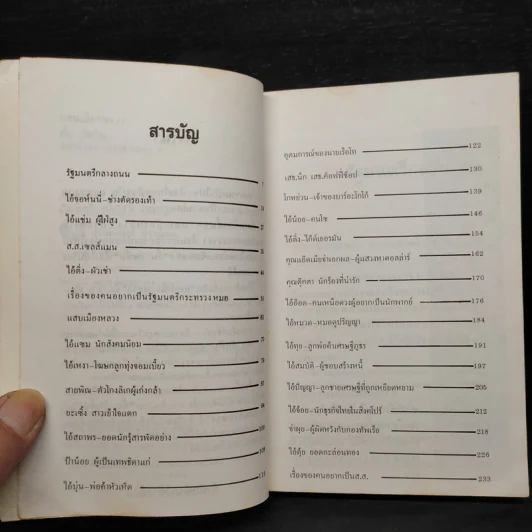 สารบัญ
รัฐมนตรีกลางถนน
ไอ้จอห์นนี่-ช่างตัดรองเท้า
ไอ้แช่ม ผู้ใฝ่สูง
ส.ส.เซลส์แมน
ไอ้ติ่ง-ผัวเช่า
เรื่องของคนอยากเป็นรัฐมนตรีกระทรวงหมอ
แสบเมืองหลวง
ไอ้แซม นักสังคมนิยม
ไอ้เหงา-โฆษกลูกทุ่งจอมเบี้ยว
สายพิณ-ตัวโกงลิเกผู้เก่งกล้า
ยะเซ็ง สาวเอ้าใจแตก
ไอ้สถาพร-ยอดนักรู้สารพัดอย่าง
ป้าน้อย ผู้เป็นเทพธิดาแก่
ไอ้บุ่น-พ่อค้าหัวเห็ด
อุดมการณ์ของนายเรือโท 122
เสธ.นัก เสธ.คอฟฟี่ช็อป 130
โกหย่วน-เจ้าของบาร์อะโกโก้ 139
ไอ้น้อย-คนโซ 146
ไอ้ติ่ง-ไก๊ด์เยอรมัน 154
คุณแอ๊ดเมียจ่าเอกผล-ผู้แสวงหาดอลล่าร์ 162
คุณตุ๊กตา นักร้องที่น่ารัก 170
ไอ้อ๊อด-คนเหนือดวงผู้อยากเป็นนักพากย์ 176
ไอ้หมวด-หมอดูปริญญา 184
ไอ้ทุย-ลูกพ่อค้าเศรษฐีภูธร 191
ไอ้สมบัติ-ผู้ชอบสร้างหนี้ 197
ไอ้ปัญญา-ลูกชายเศรษฐีที่ถูกเหยียดหยาม 205
ไอ้จ้อย-นักธุรกิจไทยในสิงคโปร์ 212
จ่าผุย-ผู้ผิดหวังกับกองทัพเรือ 218
ไอ้ตุ้ย ยอดกะล่อนทอง 226
เรื่องของคนอยากเป็นส.ส. 233